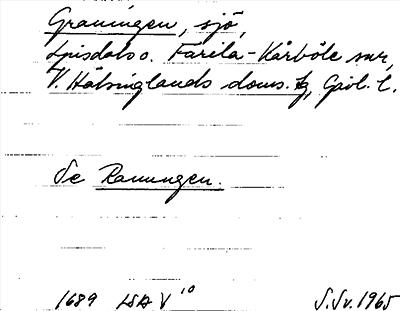 Graningen, sjö,
Ljusdals o. Färila-Kårböle snr,
V. Hälsinglands doms. tg, Gävl. l.
Se Ranungen.
1689 LSA V 10 S.Sv. 1965